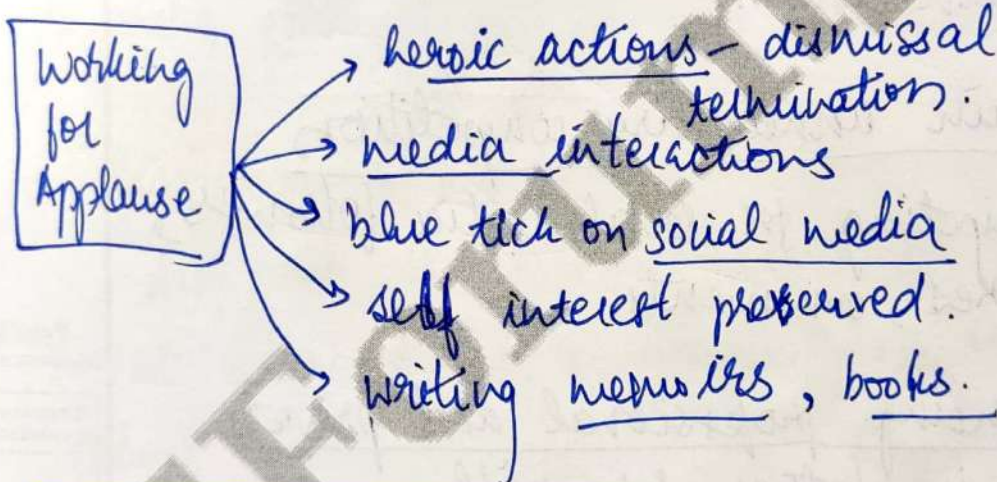 Working
for
Applause
heroic actions - dismissal
termination.
media interactions
blue tick on social media
self interest preserved.
writing memoirs, books.
Forum